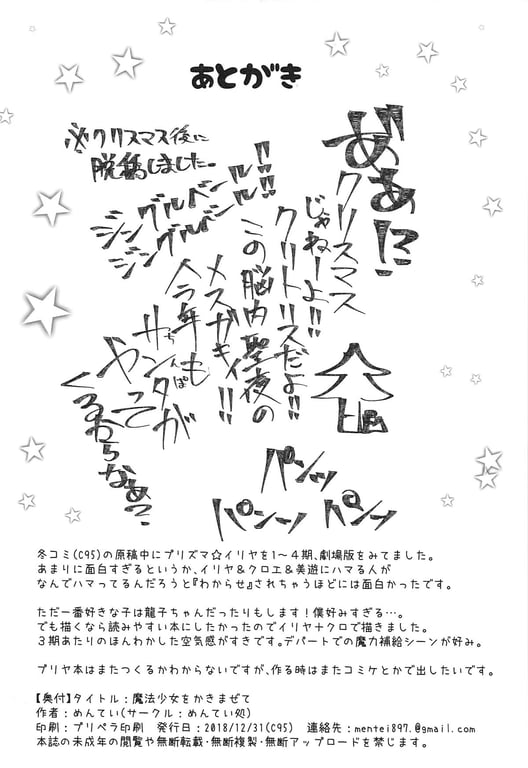 あとがき
※クリスマス後に
脱稿しました。
ああ!?
クリスマス
じゃねーよ!!
クリトリスだよ!!
この脳内聖夜の
メスガキィ!!
今年も
サンタが
ちんぽ
やって
くるからなあ?
ジングルベール!!
ジングルベール!!
パンッ
パンッ パンッ
冬コミ(C95)の原稿中にプリズマ☆イリヤを1〜4期、劇場版をみてました。
あまりに面白すぎるというか、イリヤ&クロエ&美遊にハマる人が
なんでハマってるんだろうと『わからせ』されちゃうほどには面白かったです。
ただ一番好きな子は龍子ちゃんだったりもします!僕好みすぎる…。
でも描くなら読みやすい本にしたかったのでイリヤ+クロで描きました。
3期あたりのほんわかした空気感がすきです。デパートでの魔力補給シーンが好み。
プリヤ本はまたつくるかわからないですが、作る時はまたコミケとかで出したいです。
【奥付】タイトル:魔法少女をかきまぜて
作者:めんてい(サークル:めんてい処)
印刷:プリペラ印刷 発行日:2018/12/31(C95) 連絡先:mentei897.@gmail.com
本誌の未成年の閲覧や無断転載・無断複製・無断アップロードを禁じます。